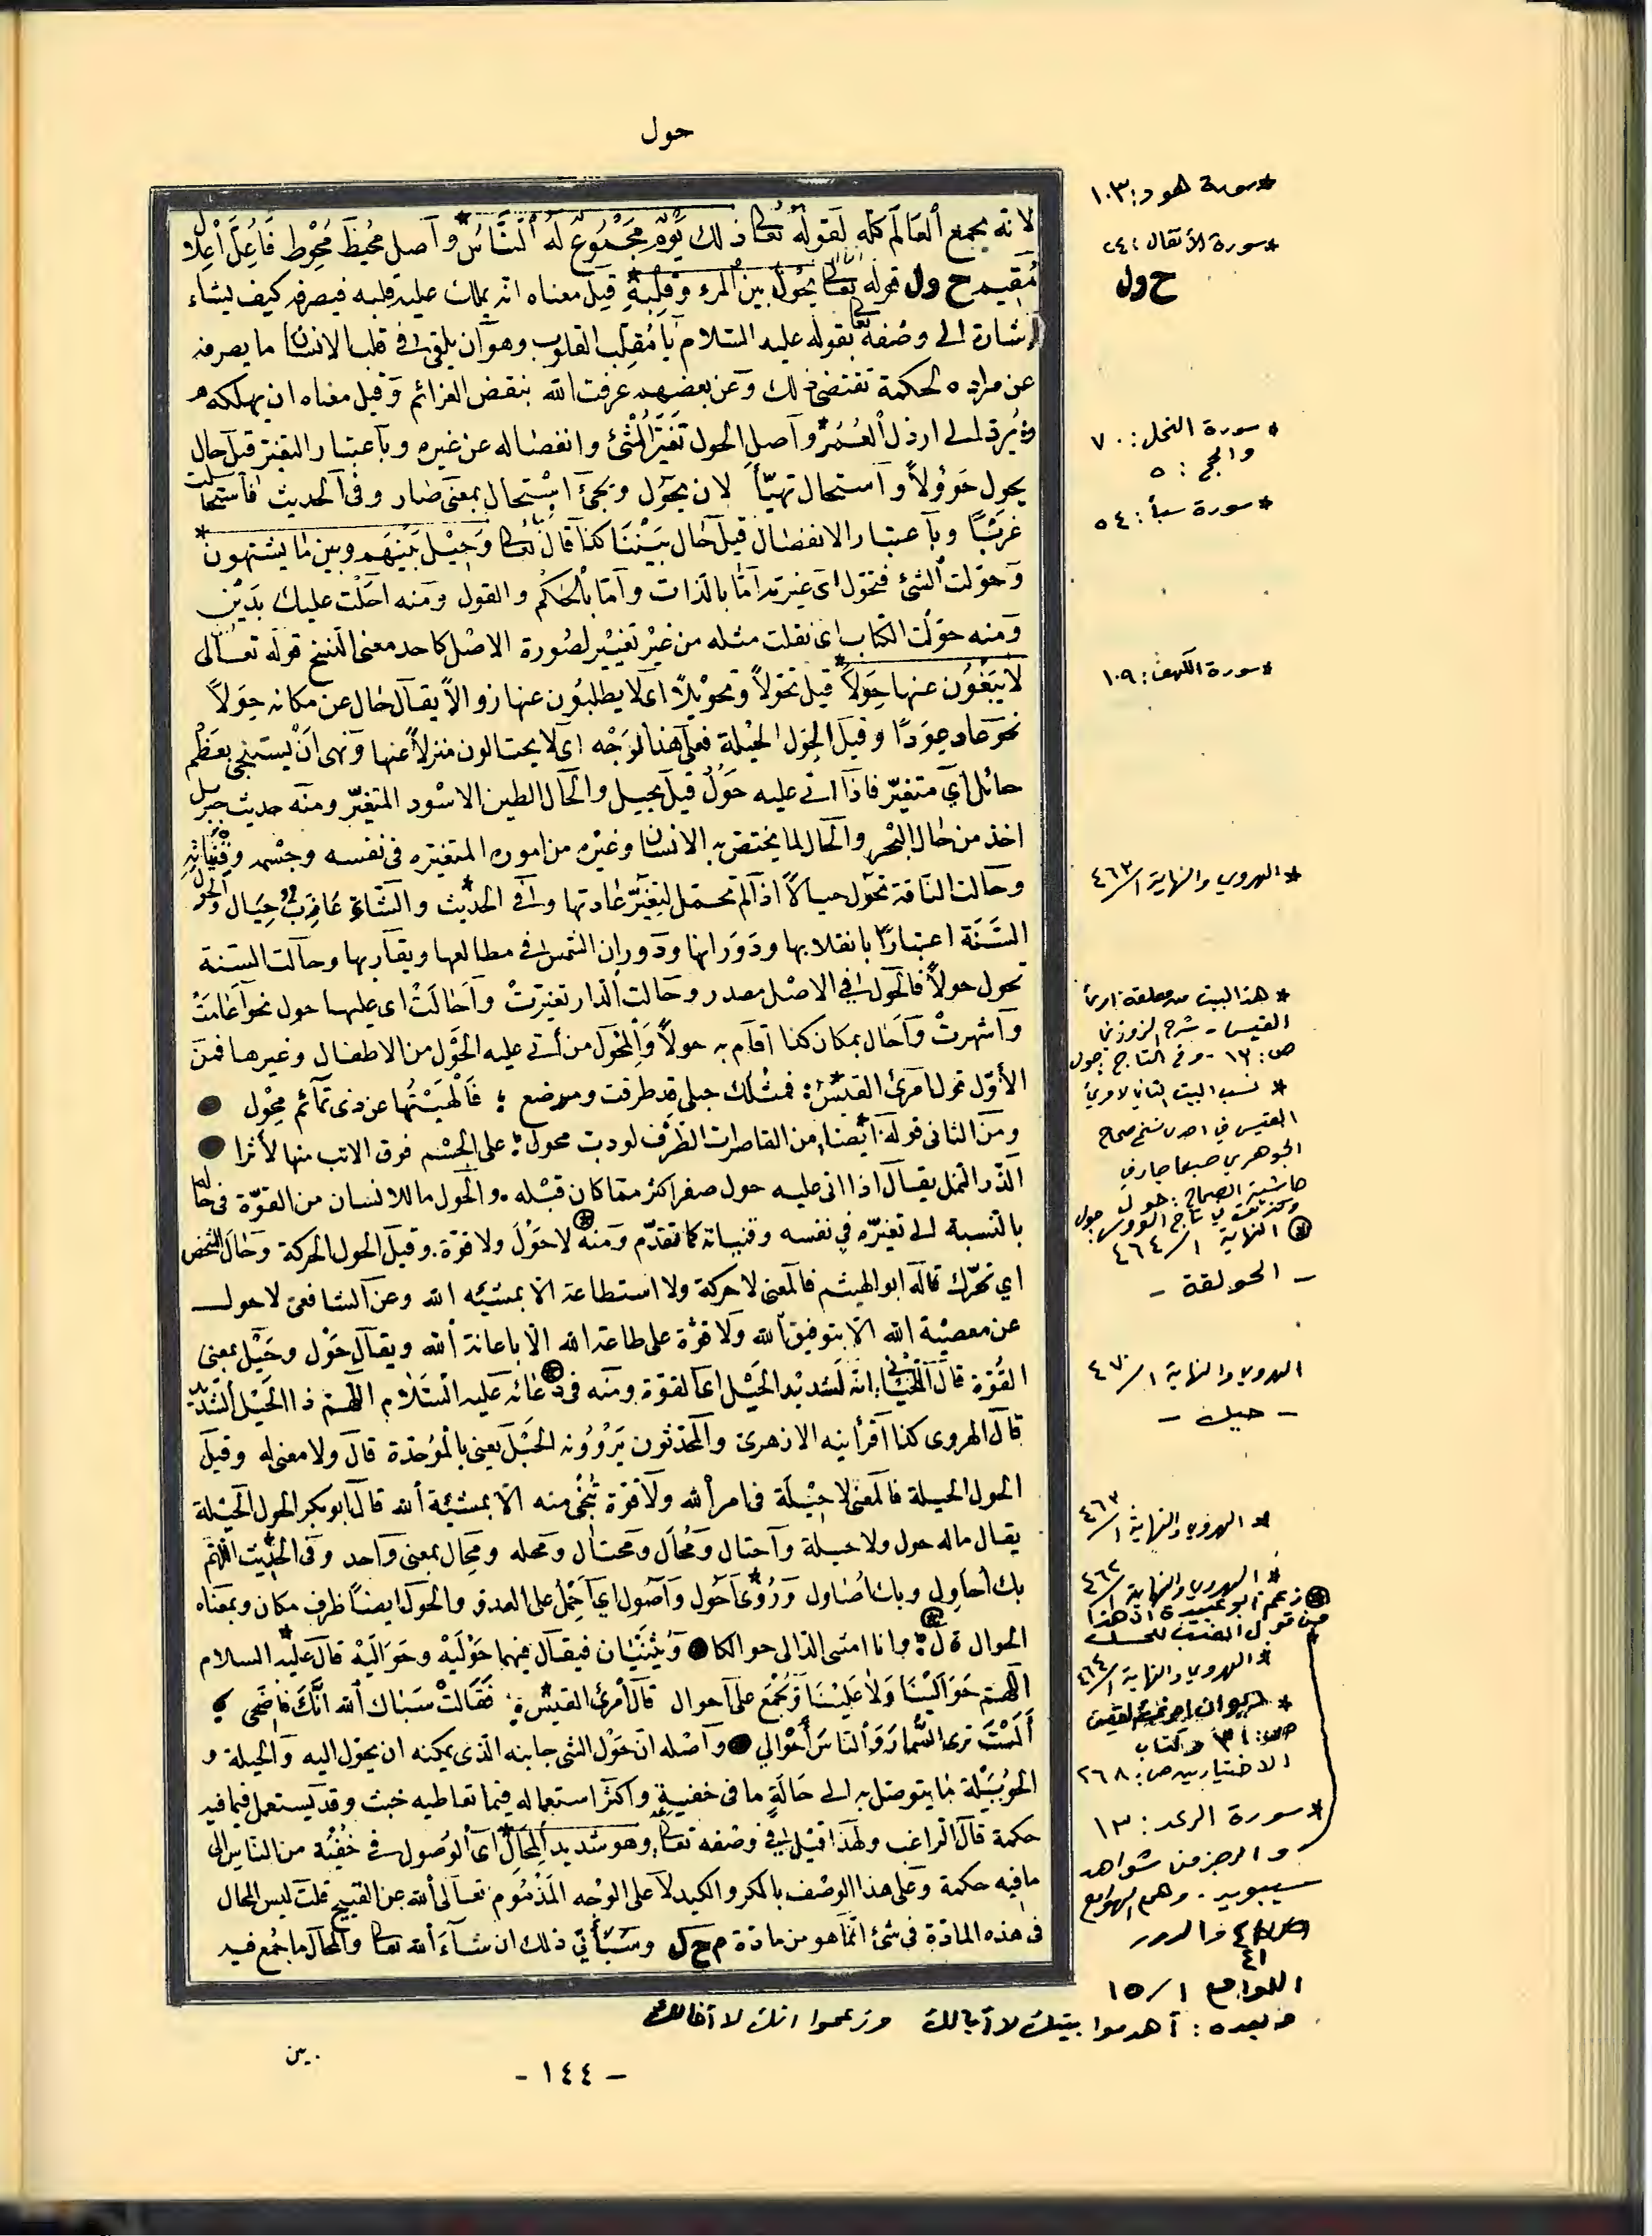 حول
لانه يجمع العالم كله لقوله تعالى ذلك يوم مجموع له الناس* وأصل محيط محوط فأعل اعلال
مقيم ح ول قوله تعالى يحول بين المرء وقلبه* قيل معناه انه يملك عليه قلبه فيصرفه كيف يشاء
اشارة الى وصفه تعالى بقوله عليه السلام يا مقلب القلوب وهو أن يلقى في قلب الانسان ما يصرفه
عن مراده لحكمة تقتضى ذلك وعن بعضهم عرفت الله بنقض العزائم وقيل معناه ان يهلكه
ويرد الى ارذل العمر* وأصل الحول تغير الشئ وانفصاله عن غيره وباعتبار التغير قيل حال
يحول حؤولا واستحال تهيأ لان يحول ويجئ استحال بمعنى صار وفى الحديث فاستحالت
غربا وباعتبار الانفصال قيل حال بيننا كذا قال تعالى وحيل بينهم وبين ما يشتهون*
وحولت الشئ فتحول اى غيرته اما بالذات واما بالحكم والقول ومنه احلت عليك بدين
ومنه حولت الكتاب اى نقلت مثله من غير تغيير لصورة الاصل كاحد معنى النسخ قوله تعالى
لا يبغون عنها حولا* قيل تحولا وتحويلا اى لا يطلبون عنها زوالا يقال حال عن مكانه حولا
نحو عاد عودا وقيل الحول الحيلة فعلى هذا الوجه اى لا يحتالون منزلا عنها ونهى ان يستنجى بعظم
حائل اى متغير فاذا اتى عليه حول قيل محيل والحال الطين الاسود المتغير ومنه حديث جبريل
اخذ من حال البحر والحال لما يختص به الانسان وغيره من اموره المتغيره فى نفسه وجسمه وقنياته
وحالت الناقة تحول حيالا اذا لم تحمل لتغير عادتها وفى الحديث* والشاء عازب حيال والحول
السنة اعتبارا بانقلابها ودورانها ودوران الشمس فى مطالعها ومغاربها وحالت السنة
تحول حولا فالحول فى الاصل مصدر وحالت الدار تغيرت وأحالت اى عليها حول نحو أعامت
وأشهرت وأحال بمكان كذا أقام به حولا والمحول من أتى عليه الحول من الاطفال وغيرها فمن
الأول قول امرئ القيس* فمثلك حبلى قد طرقت ومرضع فألهيتها عن ذى تمائم محول
ومن الثانى قوله أيضا* من القاصرات الطرف لو دب محول على الجسم فوق الاتب منها لأثرا
الذر النمل يقال اذا اتى عليه حول صغر اكثر مما كان قبله. والحول ما للانسان من القوة فى حاله
بالنسبة الى تغيره فى نفسه وقنياته كما تقدم ومنه لا حول ولا قوة. وقيل الحول الحركة وحال الشخص
اي تحرك قاله ابو الهيثم فالمعنى لا حركة ولا استطاعة الا بمشيئة الله وعن الشافعى لا حول
عن معصية الله الا بتوفيق الله ولا قوة على طاعة الله الا باعانة الله ويقال حول وحيل بمعنى
القوة قال اللحيانى انه لشديد الحيل اى القوة ومنه فى دعائه عليه السلام اللهم ذا الحيل الشديد
قال الهروى كذا أقرأنيه الازهرى والمحدثون يروونه الحبل يعنى بالموحدة قال ولا معنى له وقيل
الحول الحيلة فالمعنى لا حيلة فى امر الله ولا قوة تنجى منه الا بمشيئة الله قال ابو بكر الحول الحيلة
يقال ماله حول ولا حيلة واحتال ومحال ومحتال ومحله ومحال بمعنى واحد وفى الحديث اللهم
بك أحاول وبك أصاول وروى* أحول وأصول اى أحمل على العدو والحول ايضا ظرف مكان وبمعناه
الحوال قال وانا امشى الدألى حوالكا ويثنيان فيقال فيهما حوليه وحواليه قال عليه السلام*
اللهم حوالينا ولا علينا ويجمع على أحوال قال امرئ القيس* فقالت سباك الله انك فاضحى
ألست ترى السمار والناس أحوالي وأصله ان حول الشئ جانبه الذى يمكنه ان يحول اليه والحيلة و
الحويلة ما يتوصل به الى حالة ما فى خفية واكثر استعماله فيما تعاطيه خبث وقد يستعمل فيما فيه
حكمة قال الراغب ولهذا قيل فى وصفه تعالى وهو شديد المحال* اى الوصول فى خفية من الناس الى
ما فيه حكمة وعلى هذا الوصف بالمكر والكيد لا على الوجه المذموم تعالى الله عن القبيح قلت ليس المحال
فى هذه المادة فى شئ انما هو من مادة م ح ل وسيأتي ذلك ان شاء الله تعالى والمحال ما جمع فيه
* سورة هود: ١٠٣
* سورة الأنفال: ٢٤
ح ول
* سورة النحل: ٧٠
والحج: ٥
* سورة سبأ: ٥٤
* سورة الكهف: ١٠٩
* الهروي والنهاية ١/٤٦٣
* هذا البيت من معلقة امرئ
القيس - شرح الزوزني
ص: ١٦ - وفي التاج حول
* نسب البيت الثاني لامرئ
القيس في احدى نسخ صحاح
الجوهري
حاشية الصحاح: حول
تاج العروس حول
* النهاية ١/٤٦٤
- الحولقة -
الهروي والنهاية ١/٤٧٠
- حيل -
* الهروي والنهاية ١/٤٦٣
* الهروي والنهاية ١/٤٦٢
* زعم ابو عبيدة ان هذا
من قول الضب للحسل
* الهروي والنهاية ١/٤٦٤
* ديوان امرئ القيس
ص: ٣١ وكتاب
الاختيارين ص: ٢٦٨
* سورة الرعد: ١٣
والرجز من شواهد
سيبويه. وهمع الهوامع
٤١ والدرر
اللوامع ١/١٥
وبعده: أهدموا بيتك لا أبا لك وزعموا انك لا أخا لك
بين
- ١٤٤ -